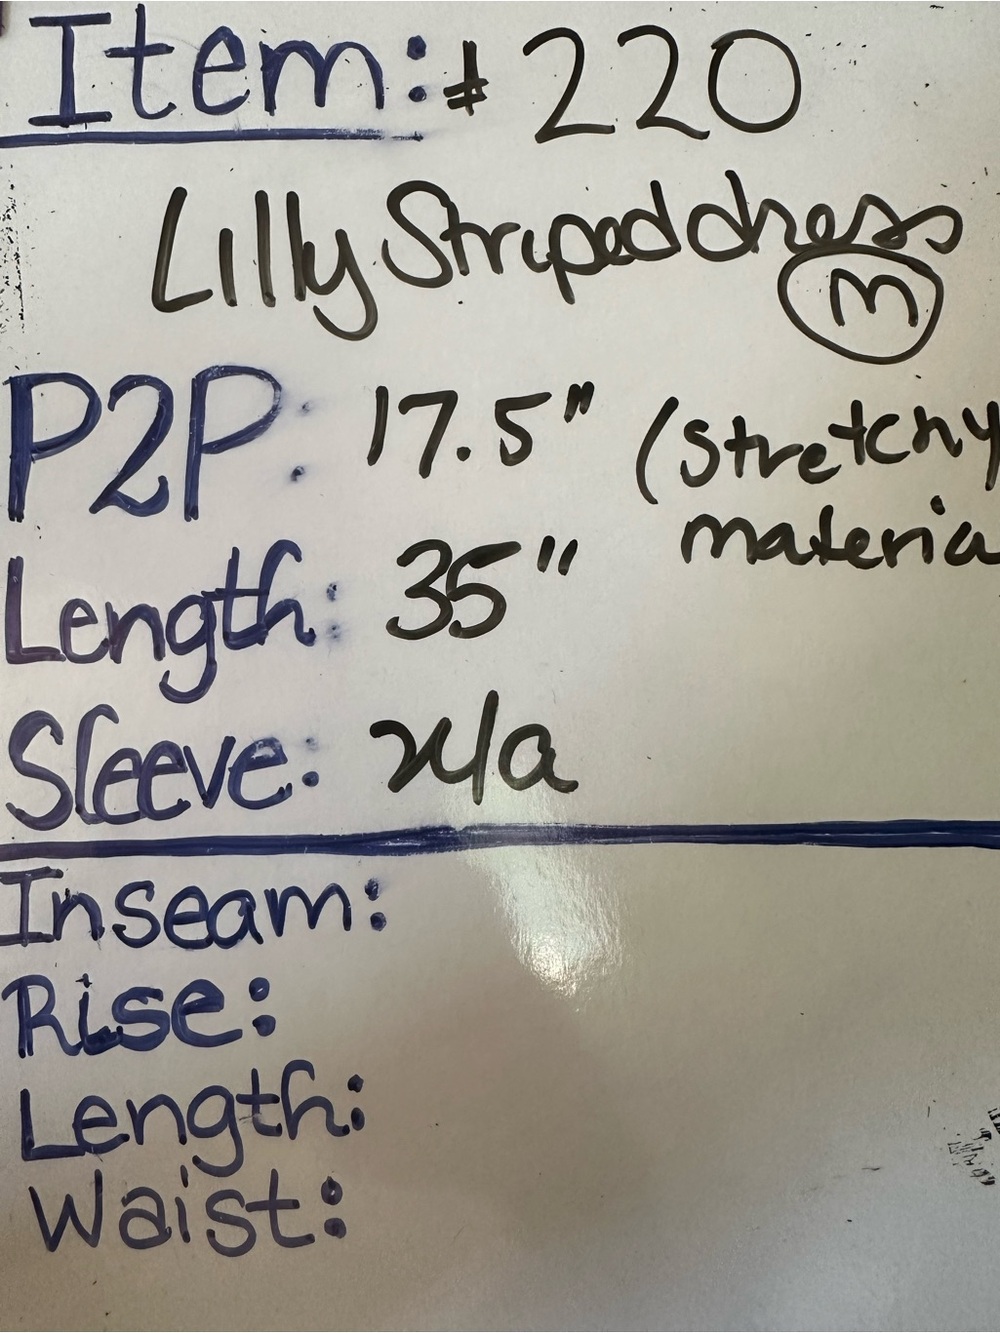 Item: #220
Lilly Striped dress
M
P2P: 17.5" (stretchy
materia
Length: 35"
Sleeve: n/a
Inseam:
Rise:
Length:
Waist: